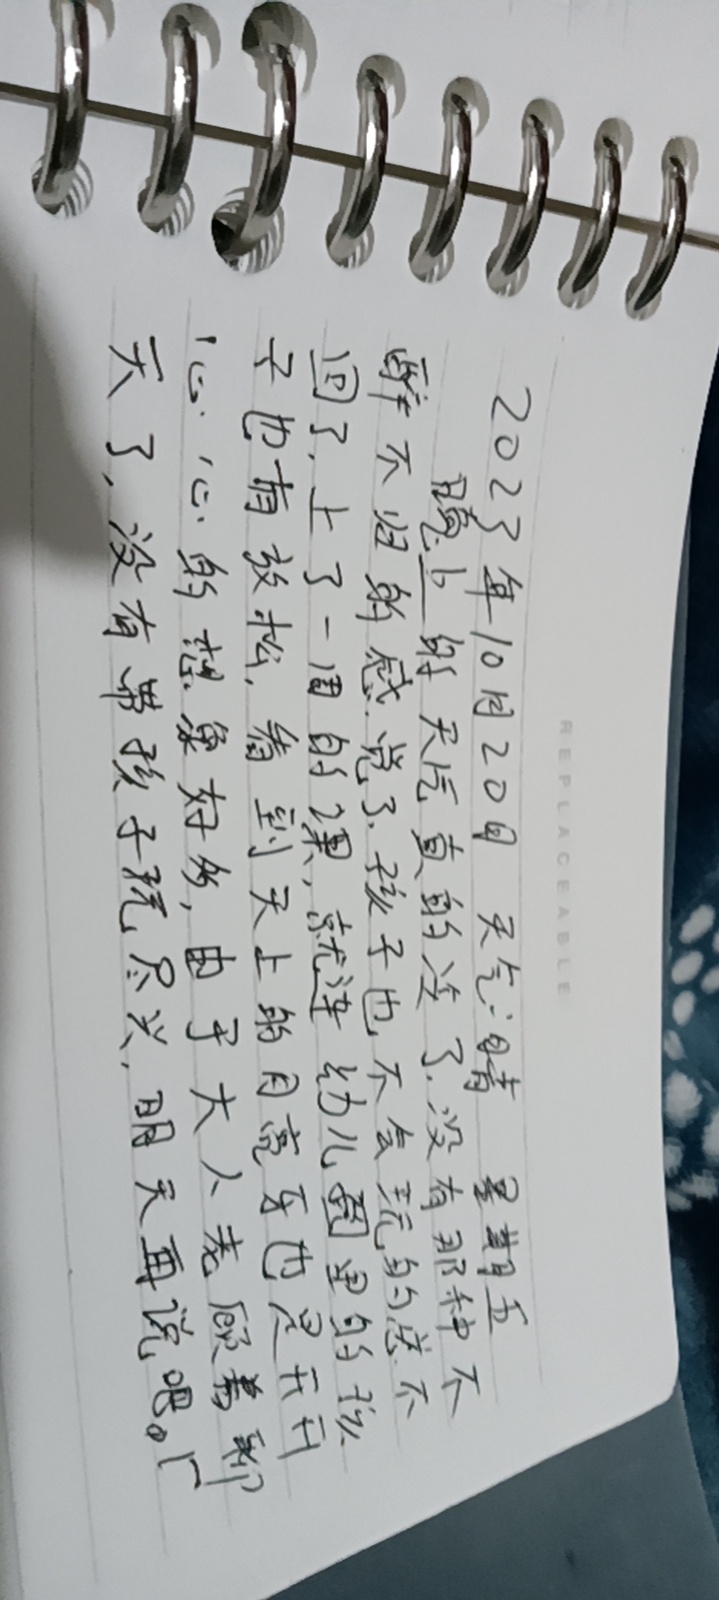 REPLACEABLE
2023年10月20日 天气:晴 星期五
晚上的天气真的冷了.没有那种不
醉不归的感觉了.孩子也不会玩的忘不
回了.上了一周的课,就连幼儿园里的孩
子也有放松,看到天上的月亮牙也是开开
心心的想象好多,由于大人老顾着聊
天了,没有带孩子玩尽兴,明天再说吧。